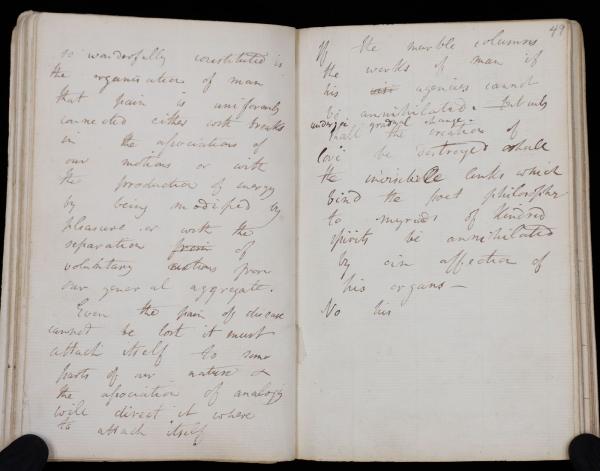 so wonderfully constituted is
the organisation of man
that pain is uniformly
connected either with breaks
in the associations of
our motions or with
the production of energy
by being modified by
pleasure or with the
separation from of
voluntary motions from
our general aggregate.
Even the pain of disease
cannot be lost it must
attach itself to some
parts of our nature &
the association of analogy
will direct it where
to attach itself
49
If the marble columns
the works of man if
his agencies cannot
be annihilated. But only
undergo gradual change.
shall the creation of
love be destroyed shall
the invisible links which
bind the poet philosopher
to myriads of kindred
spirits be annihilated
by an affection of
his organs —
No his